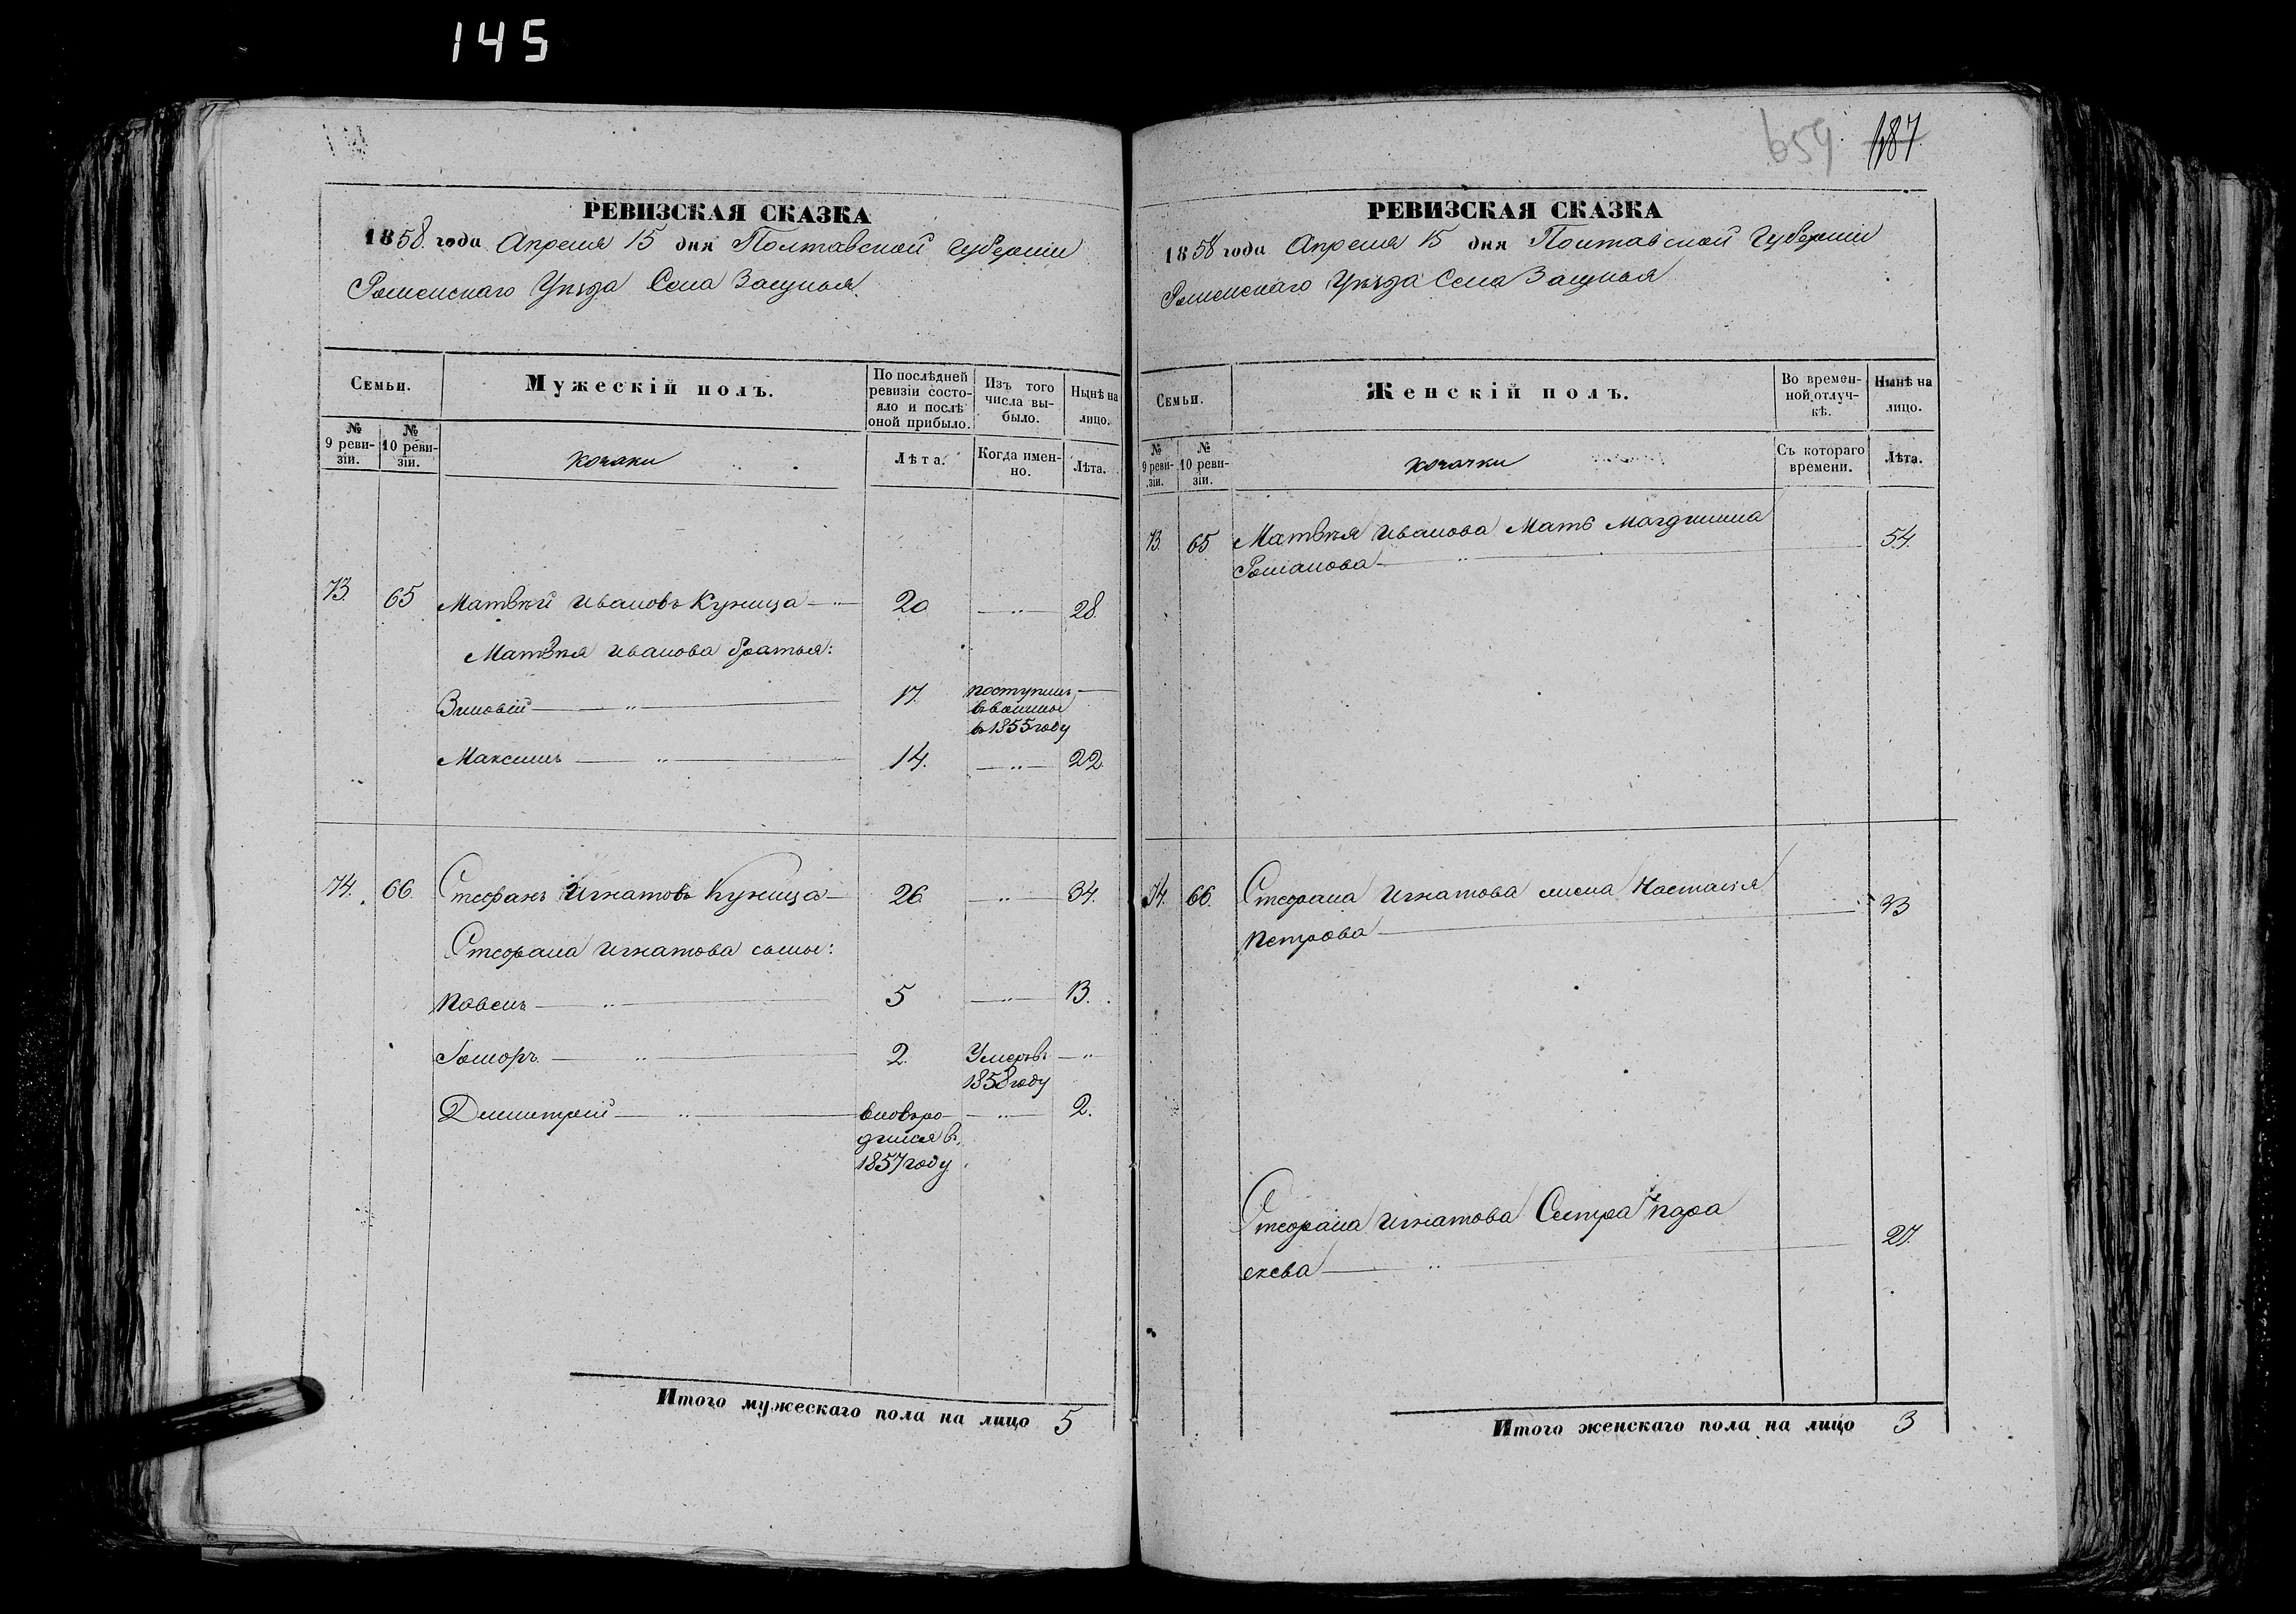 145
РЕВИЗСКАЯ СКАЗКА
1858 года Апреля 15 дня Полтавской губернии
Роменскаго Уѣзда Села Засулья
Семьи.
Мужескій полъ.
По послѣдней ревизіи состояло и послѣ оной прибыло.
Изъ того числа выбыло.
Нынѣ на лицо.
№ 9 ревизіи.
№ 10 ревизіи.
козаки
Лѣта.
Когда именно.
Лѣта.
73. 65 Матвѣй Ивановъ Куница — 20 — 28.
Матвѣя Иванова братья:
Зиновій — 17. поступилъ
въ военные
в 1855 году
Максимъ — 14. — 22.
74. 66. Стефанъ Игнатовъ Куница — 26 — 34.
Стефана Игнатова сыны:
Павелъ — 5 — 13.
2. Умеръ в
1858 году
Димитрій — вновь ро- — 2.
дился в
1857 году
Итого мужескаго пола на лицо 5
659 187
РЕВИЗСКАЯ СКАЗКА
1858 года Апреля 15 дня Полтавской Губернии
Роменскаго Уѣзда Села Засулья
Семьи.
Женскій полъ.
Во временной отлучкѣ.
Нынѣ на лицо.
№ 9 ревизіи.
№ 10 ревизіи.
козачки
Съ котораго времени.
Лѣта.
73. 65 Матвѣя Иванова Мать Магдилина 54.
Романова —
74. 66. Стефана Игнатова жена Настасія 33
Петрова —
Стефана Игнатова Сестра Пара
скева — 27.
Итого женскаго пола на лицо 3